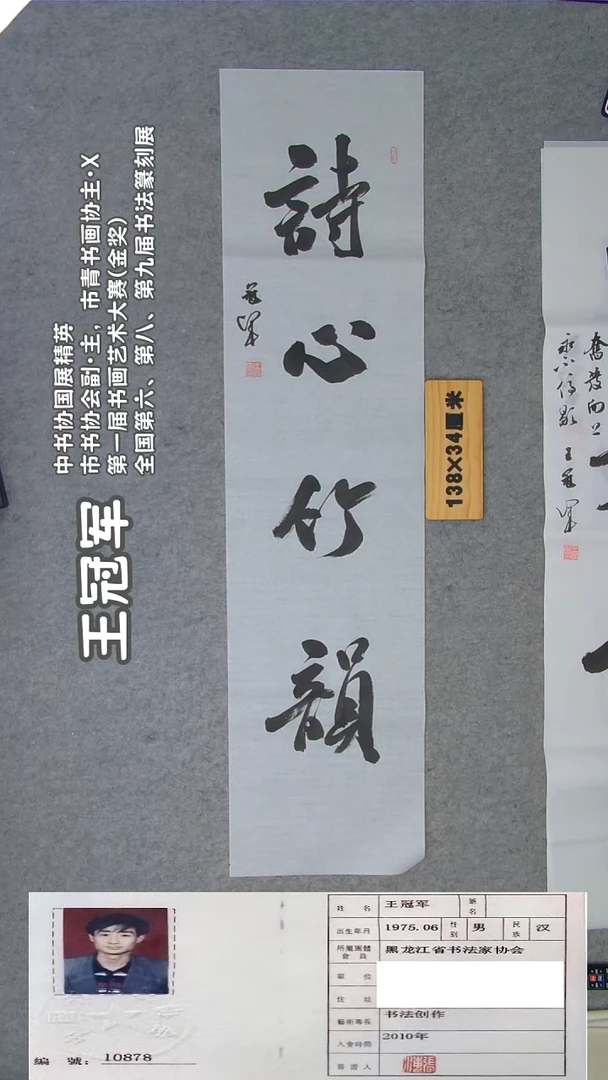 中书协国展精英
市书协会副·主，市青书画协主·X
第一届书画艺术大赛(金奖)
全国第六、第八、第九届书法篆刻展
王冠军
詩心竹韻
冠軍
138×34厘米
奮发向上
永不停歇 王冠軍
姓名 王冠军 筆名
出生年月 1975.06 性别 男 民族 汉
所屬團體會員 黑龙江省书法家协会
單位
住址
藝術專長 书法创作
入會時間 2010年
簽證人
编號：10878